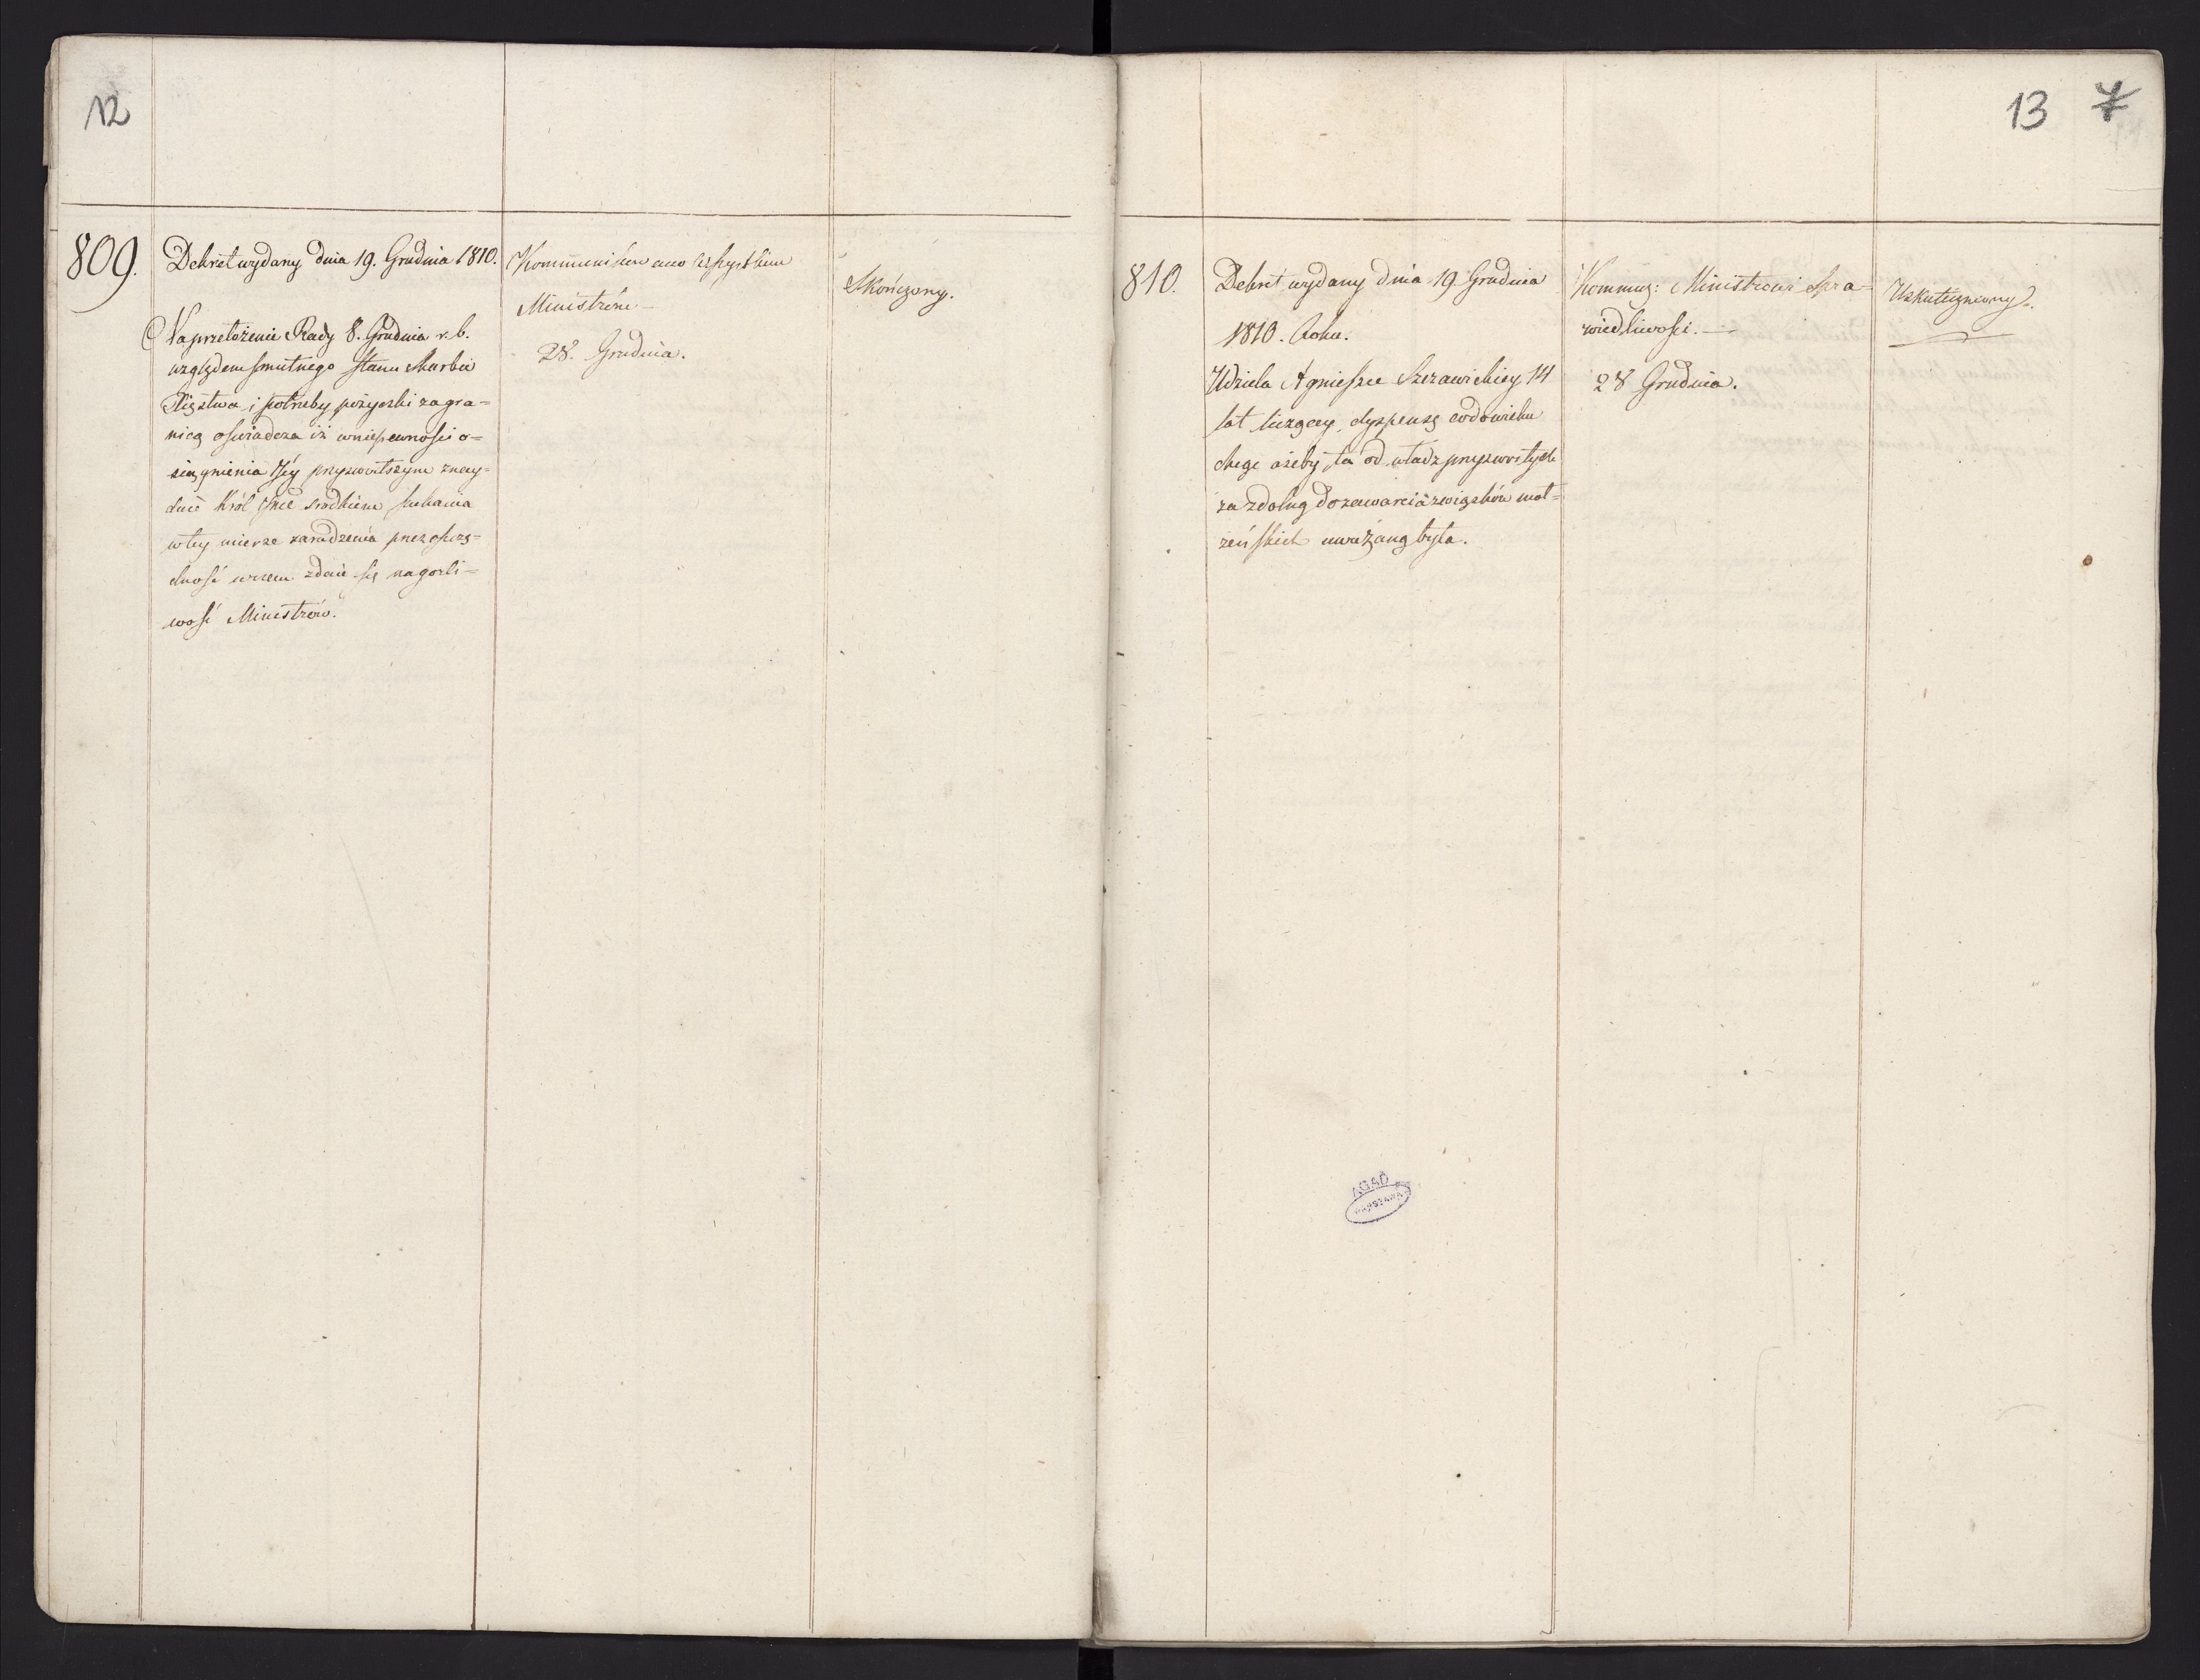 12
809.
Dekret wydany dnia 19. Grudnia 1810.
Na przełożenie Rady 8. Grudnia r. b.
względem smutnego stanu Skarbu
Xięztwa i potrzeby pożyczki zagra=
nicą oświadcza iż w niepewności o=
siągnienia Jéy przyzwoitszym znay=
duie Król Jmć środkiem szukania
w tey mierze zaradzenia przez oszczę=
dność w czem zdaie się na gorli=
wość Ministrów.
Kommunikowano wszystkim
Ministróm —
28. Grudnia.
Skończony.
13 7
810.
Dekret wydany dnia 19 Grudnia
1810. Roku.
Udziela Agnieszce Szczawickiey 14
lat liczącey, dyspensę co do wieku
chcąc ażeby ta od władz przyzwoitych
za zdolną do zawarcia związków mał=
żeńskich uważaną była.
Kommuz: Ministrowi Spra=
wiedliwości. —
28 Grudnia.
Uskuteczniony.
AGAD
WARSZAWA